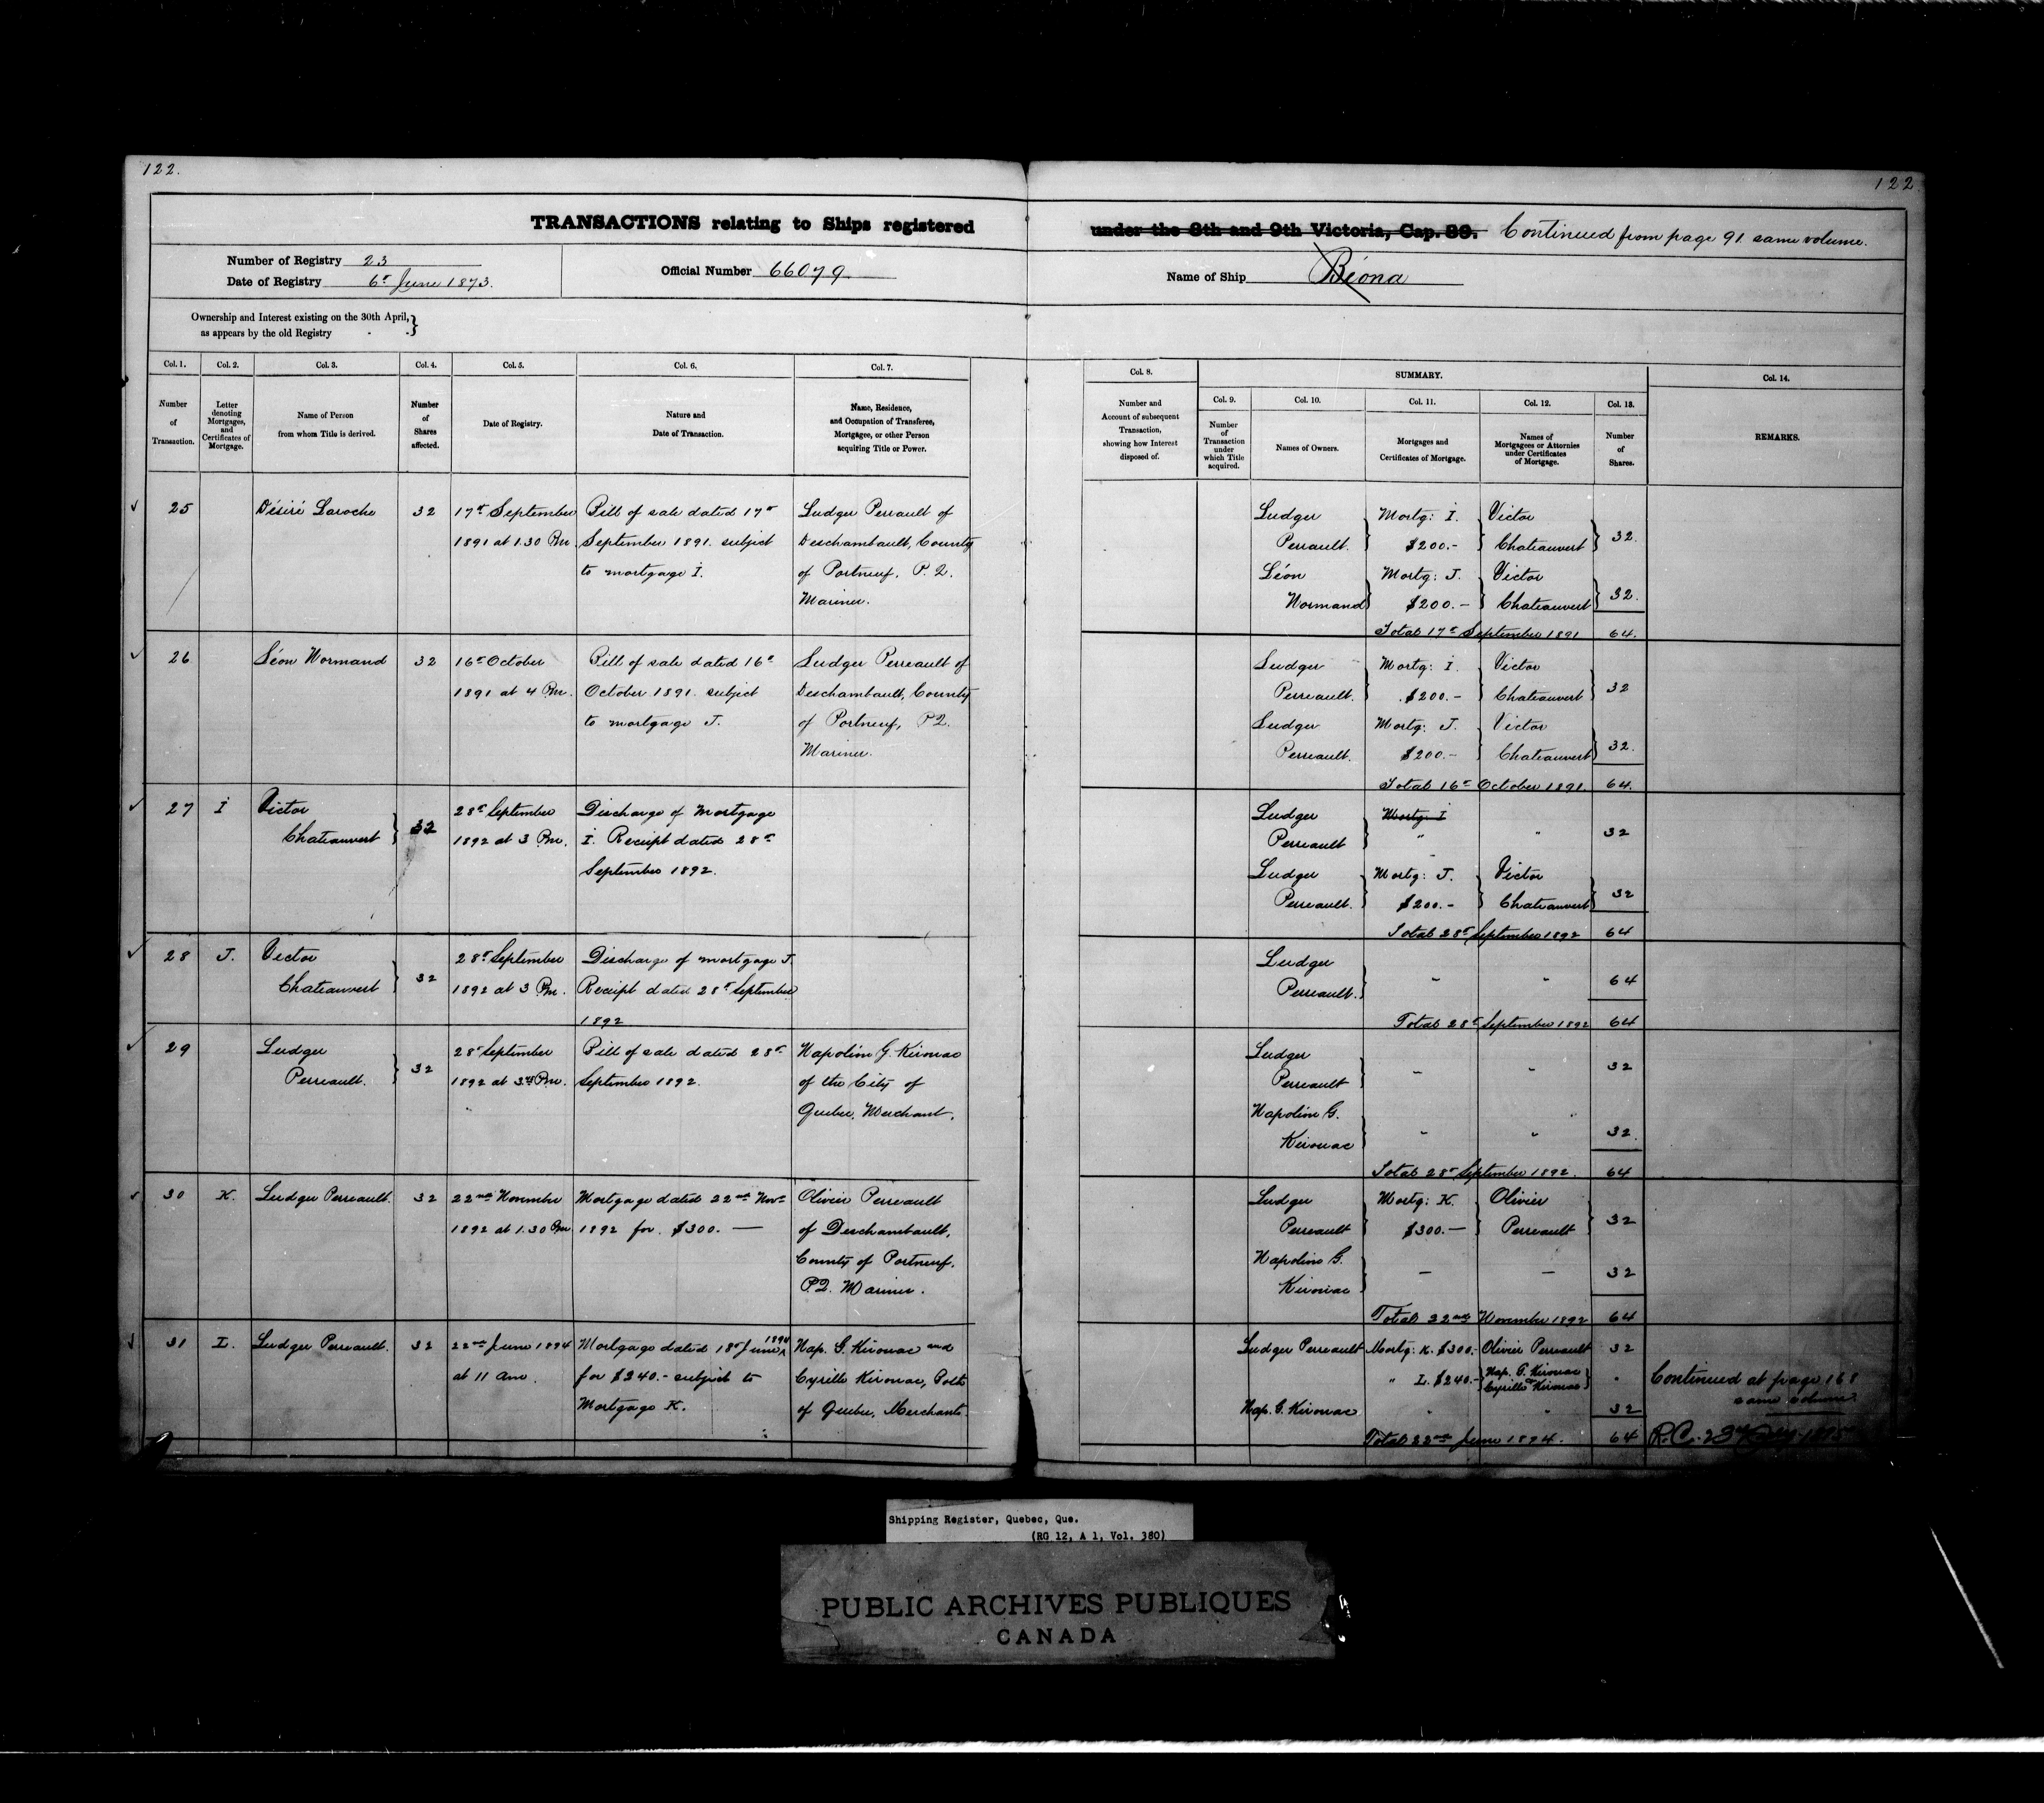 122.
122
TRANSACTIONS relating to Ships registered under the 8th and 9th Victoria, Cap. 89. Continued from page 91 same volume.
Number of Registry 23
Date of Registry 6th June 1873.
Official Number 66079
Name of Ship Béona
Ownership and Interest existing on the 30th April,
as appears by the old Registry
Col. 1.
Number
of
Transaction.
Col. 2.
Letter
denoting
Mortgages,
and
Certificates of
Mortgage.
Col. 3.
Name of Person
from whom Title is derived.
Col. 4.
Number
of
Shares
affected.
Col. 5.
Date of Registry.
Col. 6.
Nature and
Date of Transaction.
Col. 7.
Name, Residence,
and Occupation of Transferee,
Mortgagee, or other Person
acquiring Title or Power.
Col. 8.
Number and
Account of subsequent
Transaction,
showing how Interest
disposed of.
SUMMARY.
Col. 9.
Number
of
Transaction
under
which Title
acquired.
Col. 10.
Names of Owners.
Col. 11.
Mortgages and
Certificates of Mortgage.
Col. 12.
Names of
Mortgagees or Attornies
under Certificates
of Mortgage.
Col. 13.
Number
of
Shares.
Col. 14.
REMARKS.
25
Désiré Laroche
32
17th September
1891 at 1.30 Pm.
Bill of sale dated 17th
September 1891. subject
to mortgage I.
Ludger Perrault of
Deschambault, County
of Portneuf, P. Q.
Mariner.
Ludger Mortg: I. Victor
Perrault. $200.- Chateauvert 32.
Léon Mortg: J. Victor
Normand $200.- Chateauvert 32.
Total 17th September 1891 64.
26
Léon Normand
32
16th October
1891 at 4 Pm.
Bill of sale dated 16th
October 1891. subject
to mortgage J.
Ludger Perreault of
Deschambault, County
of Portneuf, P.Q.
Mariner.
Ludger Mortg: I. Victor
Perreault. $200.- Chateauvert 32
Ludger Mortg: J. Victor
Perreault. $200.- Chateauvert 32.
Total 16th October 1891. 64.
27
I
Victor
Chateauvert
32
28th September
1892 at 3 Pm.
Discharge of Mortgage
I. Receipt dated 28th
September 1892.
Ludger Mortg: I
Perreault " " 32
Ludger Mortg: J. Victor
Perreault. $200.- Chateauvert 32
Total 28th September 1892 64
28
J.
Victor
Chateauvert
32
28th September
1892 at 3 Pm.
Discharge of mortgage J.
Receipt dated 28th September
1892
Ludger
Perreault. " " 64
Total 28th September 1892 64
29
Ludger
Perreault.
32
28th September
1892 at Pm.
Bill of sale dated 28th
September 1892.
Napoléon G. Kirouac
of the City of
Quebec, Merchant.
Ludger
Perreault " " 32
Napoléon G.
Kirouac " " 32.
Total 28th September 1892. 64
30
K.
Ludger Perreault.
32
22nd November
1892 at 1.30 Pm
Mortgage dated 22nd Novr
1892 for $300. —
Olivier Perreault
of Deschambault,
County of Portneuf,
P.Q. Mariner.
Ludger Mortg: K. Olivier
Perreault $300.— Perreault 32
Napoléon G.
Kirouac — — 32
Total 22nd November 1892 64
31
L.
Ludger Perreault.
32
22nd June 1894
at 11 am.
Mortgage dated 18th June 1894
for $240.- subject to
Mortgage K.
Nap. G. Kirouac and
Cyrille Kirouac, Both
of Quebec, Merchants.
Ludger Perreault Mortg: K. $300.- Olivier Perreault 32
" L. $240.- Nap. G. Kirouac
Cyrille Kirouac "
Nap. G. Kirouac " " 32
Total 22nd June 1894. 64
Continued at page 168
same volume.
R.C. 23
Shipping Register, Quebec, Que.
(RG 12, A 1, Vol. 380)
PUBLIC ARCHIVES PUBLIQUES
CANADA